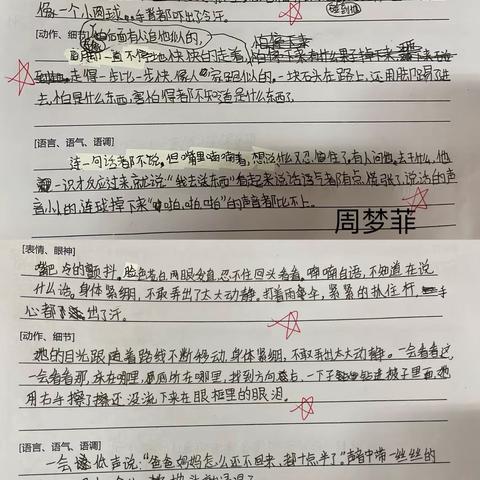 像一个小圆球，手背都吓出了冷汗。
碰到值
[动作、细节] 怕后面有人追他似的，怕摔下来
一直不停地快快的走着，
走得一步比一步快，像人家跟似的。一块石头在路上，还用脚踢了进
去，怕是什么东西，害怕得都不知道是什么东西了。
[语言、语气、语调]
连一句话都不说。但嘴里嘀嘀着，想说什么又忍住了。有人问他。去干什么，他
一识才反应过来就说："我去送东西"看起来说话语气都有点慌张了，说话的声
音小小的，连球掉下来"啪、啪、啪"的声音都比不上。
周梦菲
[表情、眼神]
嘴巴冷的颤抖。脸色发白两眼发直，忍不住回头看看。嘀嘀自语，不知道在说
什么话。身体紧绷，不敢弄出了太大动静。打着雨伞，紧紧的抓住杆，手
心都出了汗。
[动作、细节]
她的目光跟随着路线不断移动，身体紧绷，不敢弄出太大动静。一会看看这，
一会看看那，床在哪里，厕所在哪里，找到方向盘占，一下子钻进被子里面，她
用右手擦了擦还没流下来在眼框里的眼泪。
[语言、语气、语调]
一会低声说："爸爸妈妈怎么还不回来，都十点半了。"声音中带一丝丝的